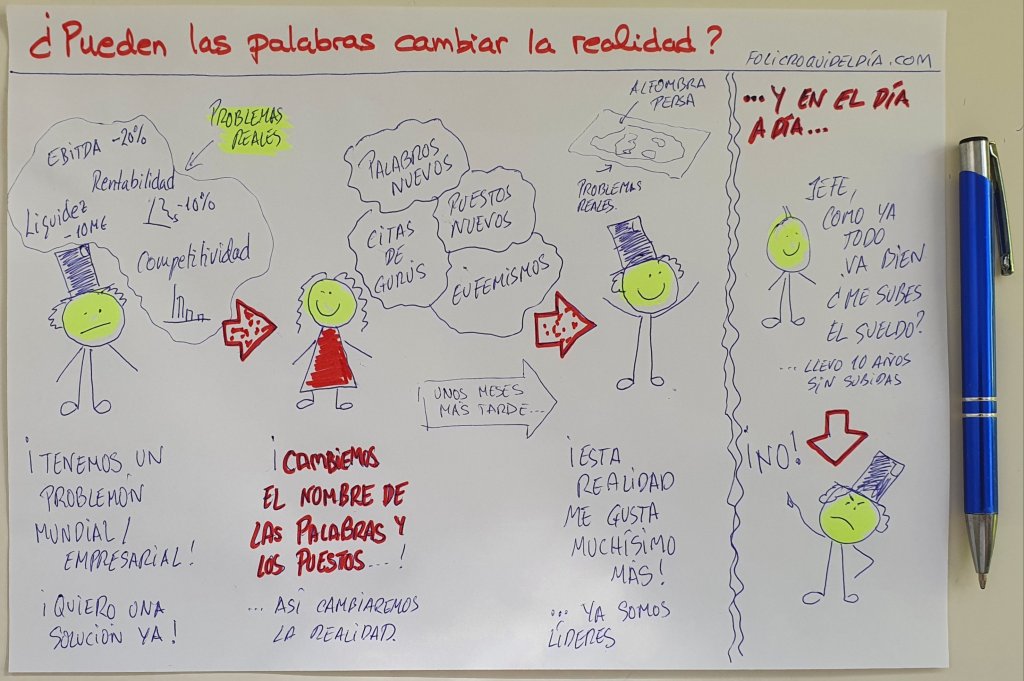 ¿Pueden las palabras cambiar la realidad?
FOLICROQUIDELDÍA.COM
PROBLEMAS
REALES
EBITDA -20%
Rentabilidad
-10%
Liquidez
-10M€
Competitividad
¡TENEMOS UN
PROBLEMÓN
MUNDIAL/
EMPRESARIAL!
¡QUIERO UNA
SOLUCIÓN YA!
PALABROS
NUEVOS
PUESTOS
NUEVOS
CITAS
DE
GURÚS
EUFEMISMOS
¡CAMBIEMOS
EL NOMBRE DE
LAS PALABRAS Y
LOS PUESTOS...!
... ASÍ CAMBIAREMOS
LA REALIDAD.
UNOS MESES
MÁS TARDE...
ALFOMBRA
PERSA
PROBLEMAS
REALES
¡ESTA
REALIDAD
ME GUSTA
MUCHÍSIMO
MÁS!
... YA SOMOS
LÍDERES
... Y EN EL DÍA
A DÍA...
JEFE,
COMO YA
TODO
VA BIEN
¿ME SUBES
EL SUELDO?
... LLEVO 10 AÑOS
SIN SUBIDAS
¡NO!